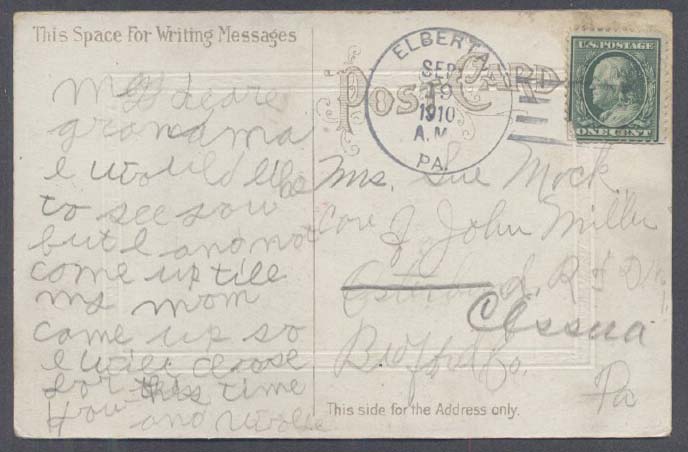 This Space For Writing Messages
POST CARD
ELBERTA
SEP
19
1910
A.M.
PA.
U.S. POSTAGE
ONE CENT
My deare
grandma
I would like
to see you
but I and not
come up till
my mom
come up so
I will close
for this time
How and
Mrs. Sue Mock
Care of John Miller
Osterburg, R F D
Cessna
Bedford Co.
Pa
This side for the Address only.